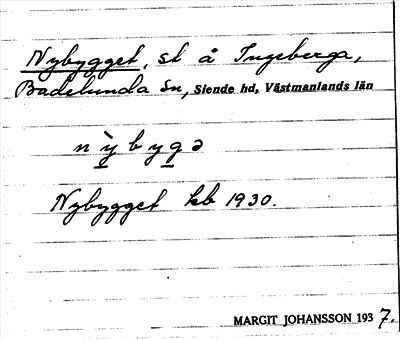 Nybygget, st å Ingeberga,
Badelunda sn, Siende hd, Västmanlands län
nỳbygə
Nybygget kb 1930.
MARGIT JOHANSSON 1937.